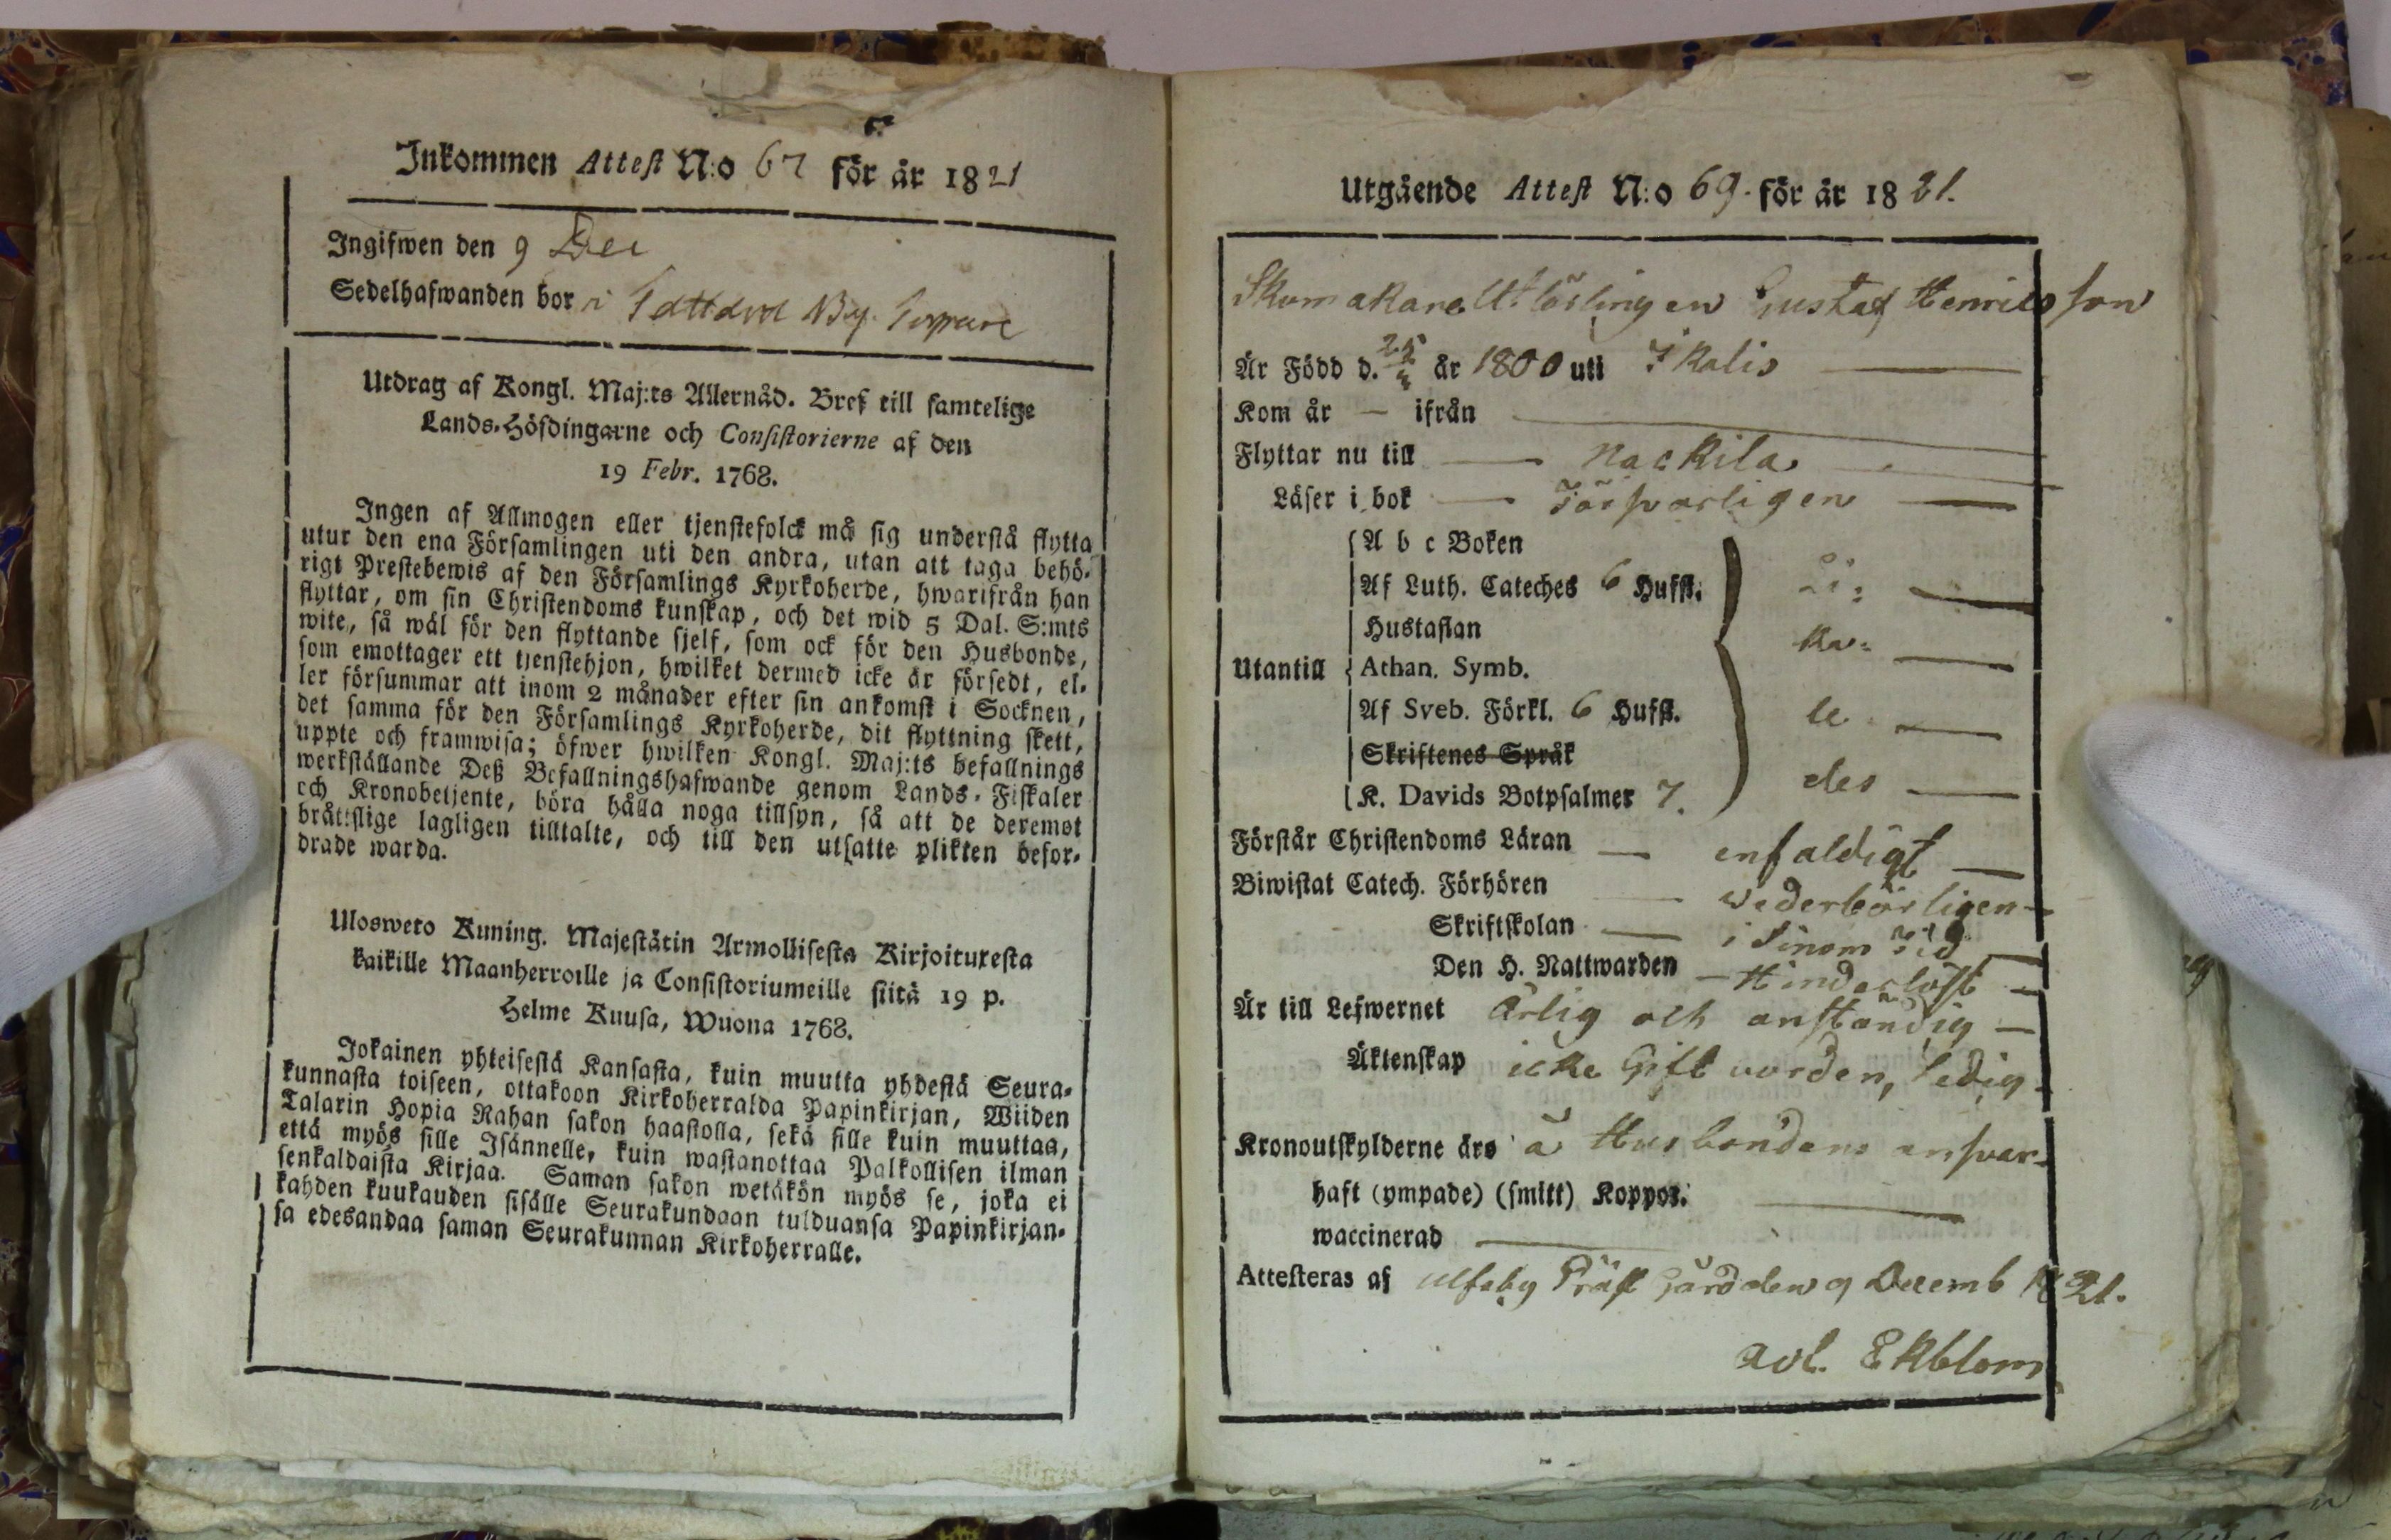 Inkommen Attest N:o 67 för år 1821
Ingifwen den 9 Dec
Sedelhafwanden bor i By
Utdrag af Kongl. Maj:ts Allernåd. Bref till samtelige
Lands-Höfdingarne och Consistorierne af den
19 Febr. 1768.
Ingen af Allmogen eller tjenstefolck må sig understå flytta
utur den ena Församlingen uti den andra, utan att taga behö-
rigt Prestebewis af den Församlings Kyrkoherde, hwarifrån han
flyttar, om sin Christendoms kunskap, och det wid 5 Dal. S:mts
wite, så wäl för den flyttande sjelf, som ock för den Husbonde,
som emottager ett tjenstehjon, hwilket dermed icke är försedt, el-
ler försummar att inom 2 månader efter sin ankomst i Socknen,
det samma för den Församlings Kyrkoherde, dit flyttning skett,
uppte och framwisa; öfwer hwilken Kongl. Maj:ts befallnings
werkställande Deß Befallningshafwande genom Lands-Fiskaler
och Kronobetjente, böra hålla noga tillsyn, så att de deremot
bråttslige lagligen tilltalte, och till den utsatte plikten befor-
drade warda.
Ulosweto Kuning. Majestätin Armollisesta Kirjoituxesta
kaikille Maanherroille ja Consistoriumeille siitä 19 p.
Helme Kuusa, Wuona 1768.
Jokainen yhteisestä Kansasta, kuin muutta yhdestä Seura-
kunnasta toiseen, ottakoon Kirkoherralda Papinkirjan, Wiiden
Talarin Hopia Rahan sakon haastolla, sekä sille kuin muuttaa,
että myös sille Isännelle, kuin wastanottaa Palkollisen ilman
senkaldaista Kirjaa. Saman sakon wetäkön myös se, joka ei
kahden kuukauden sisälle Seurakundaan tulduansa Papinkirjan-
sa edesandaa saman Seurakunnan Kirkoherralle.
Utgående Attest N:o 69. för år 1821.
Skomakare Utlärlingen Gustaf Henricsson
Är Född d. 25/4 år 1800 uti Ikalis
Kom år — ifrån
Flyttar nu till — Nackila
Läser i bok — Försvarligen
A b c Boken
Af Luth. Cateches 6 Hufst. Li:
Hustaflan
Utantill Athan. Symb. ka:
Af Sveb. Förkl. 6 Hufst. le
Skriftenes Språk
K. Davids Botpsalmer 7. des
Förstår Christendoms Läran — enfaldigt
Biwistat Catech. Förhören — wederbörligen
Skriftskolan — i sinom tid
Den H. Nattwarden — Hinderlöst
Är till Lefwernet Ärlig och anständig
Äktenskap icke Gift worden, ledig
Kronoutskylderne äro å Husbondens answar
haft (ympade) (smitt) Koppor.
waccinerad
Attesteras af Ulfsby Präst Gård den 9 Decemb 1821.
Ekblom